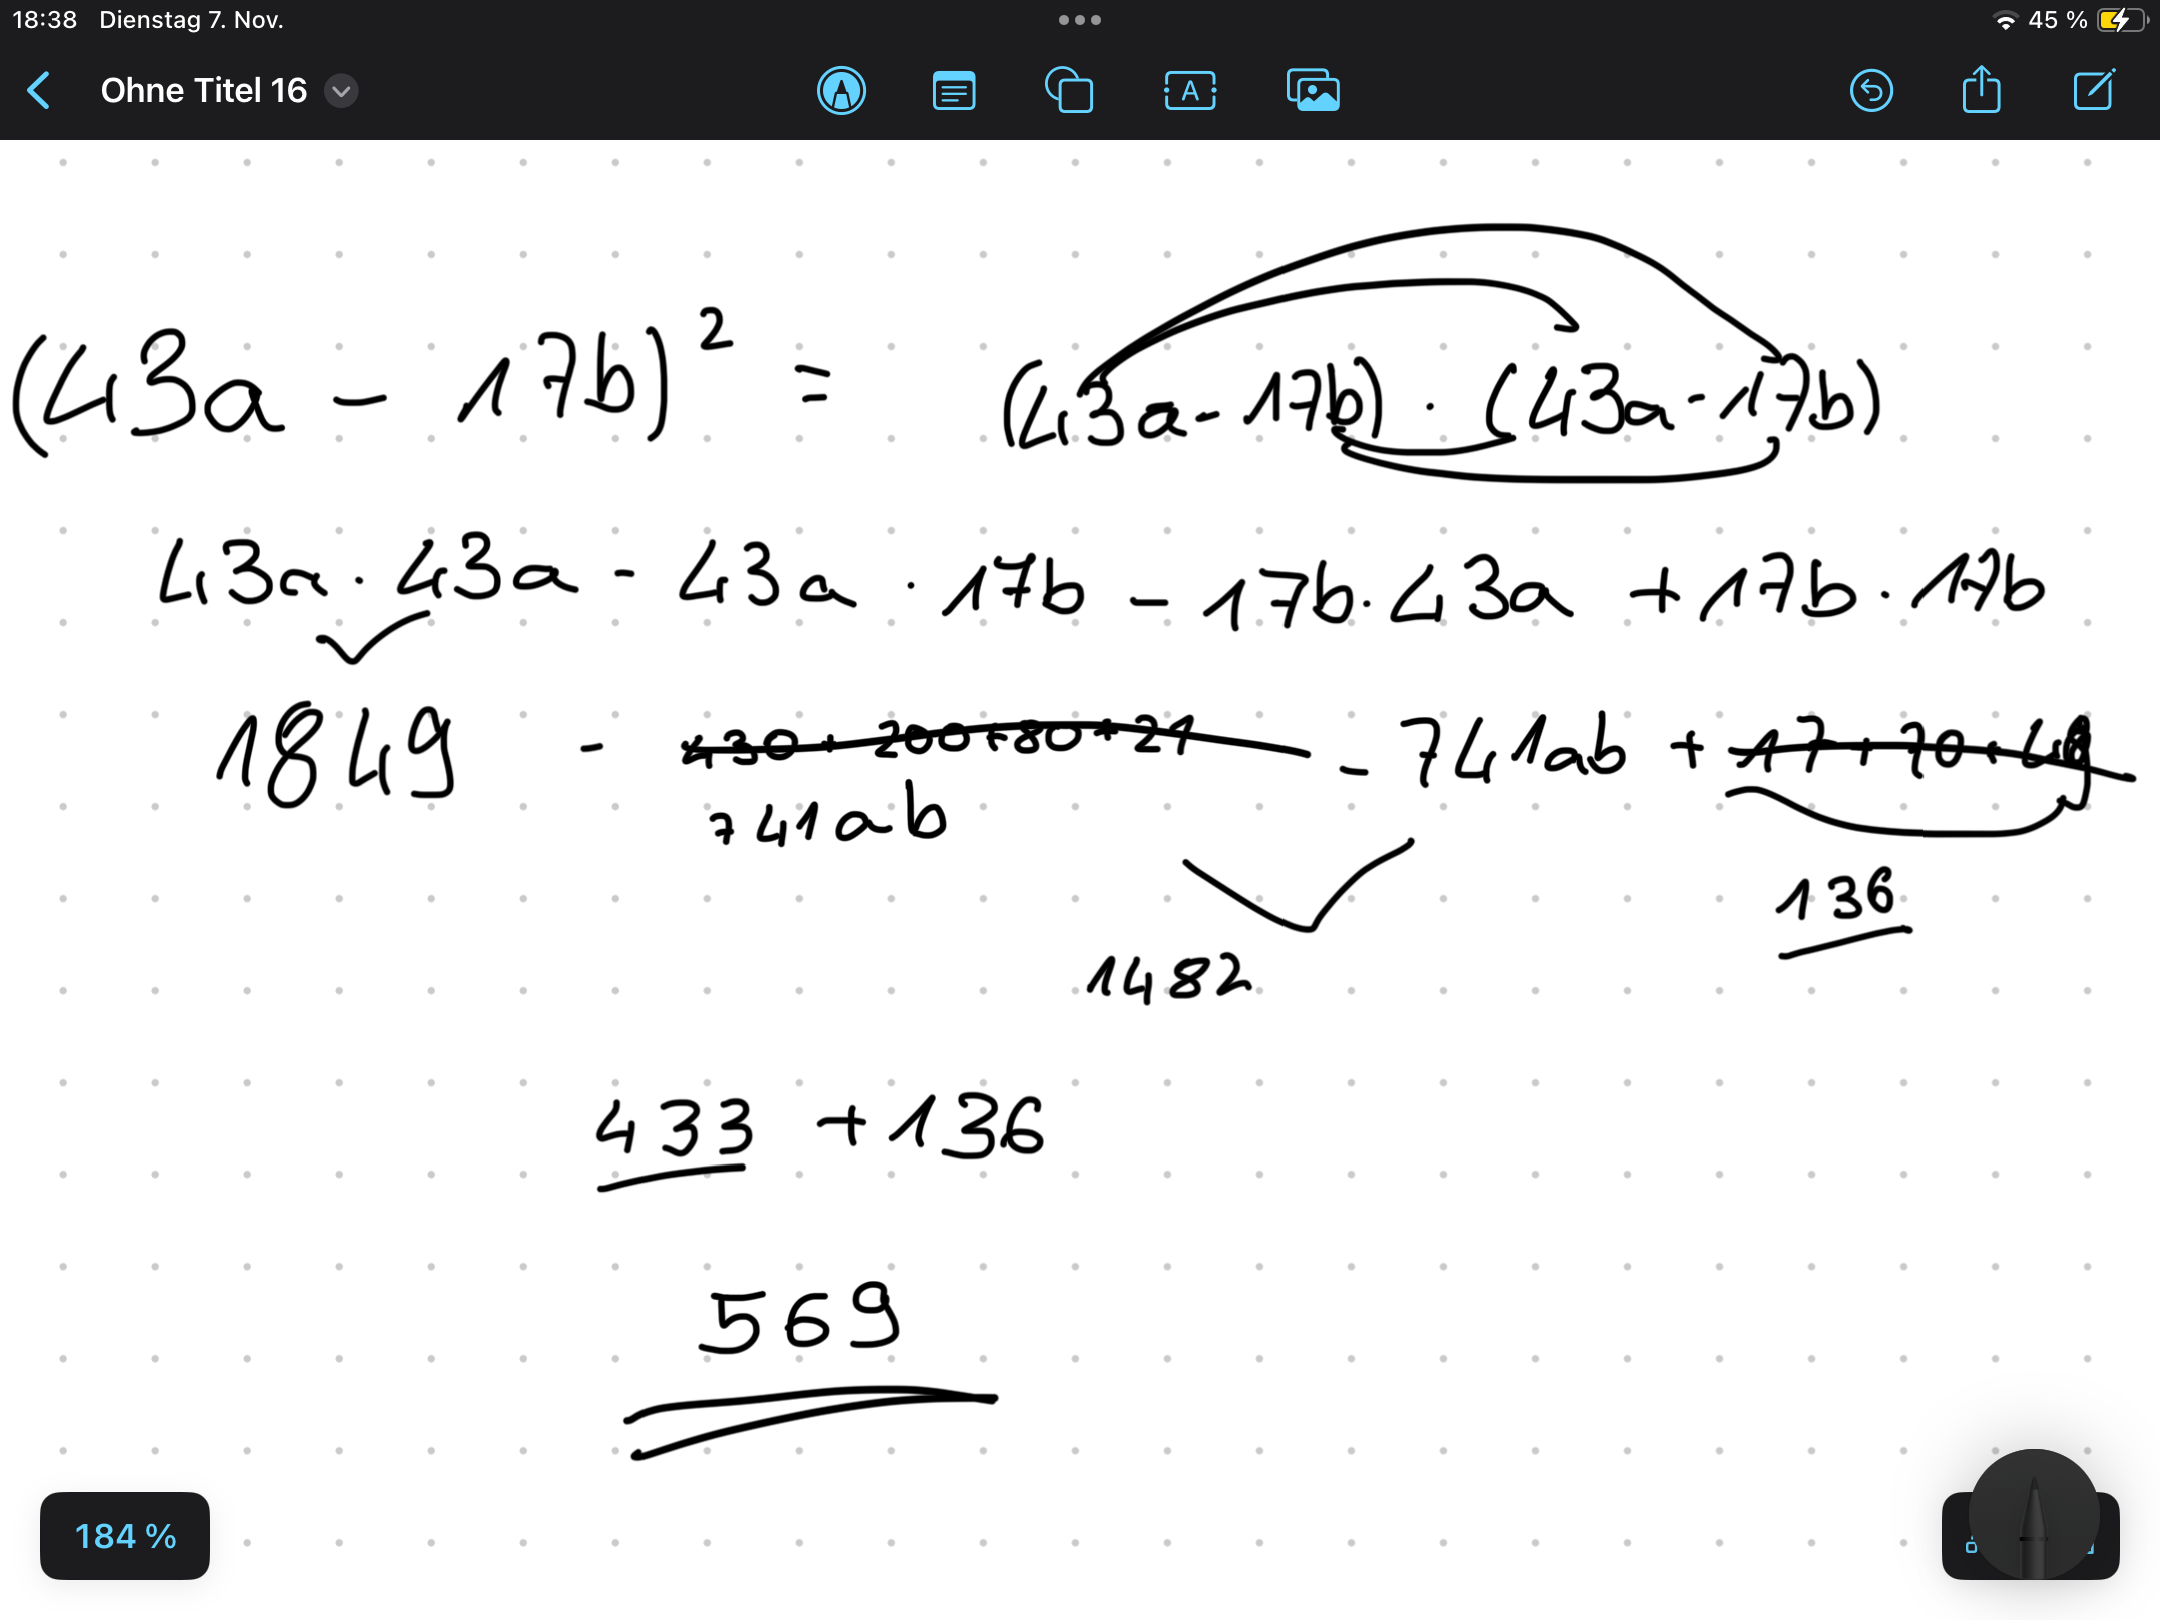 18:38 Dienstag 7. Nov. 45 %
Ohne Titel 16
(43a - 17b)² = (43a - 17b) · (43a - 17b)
43a · 43a - 43a · 17b - 17b · 43a + 17b · 17b
1849 - 430 + 200 + 80 + 21 - 741ab + 17 + 70 + 49
741ab
136
1482
433 + 136
569
184 %